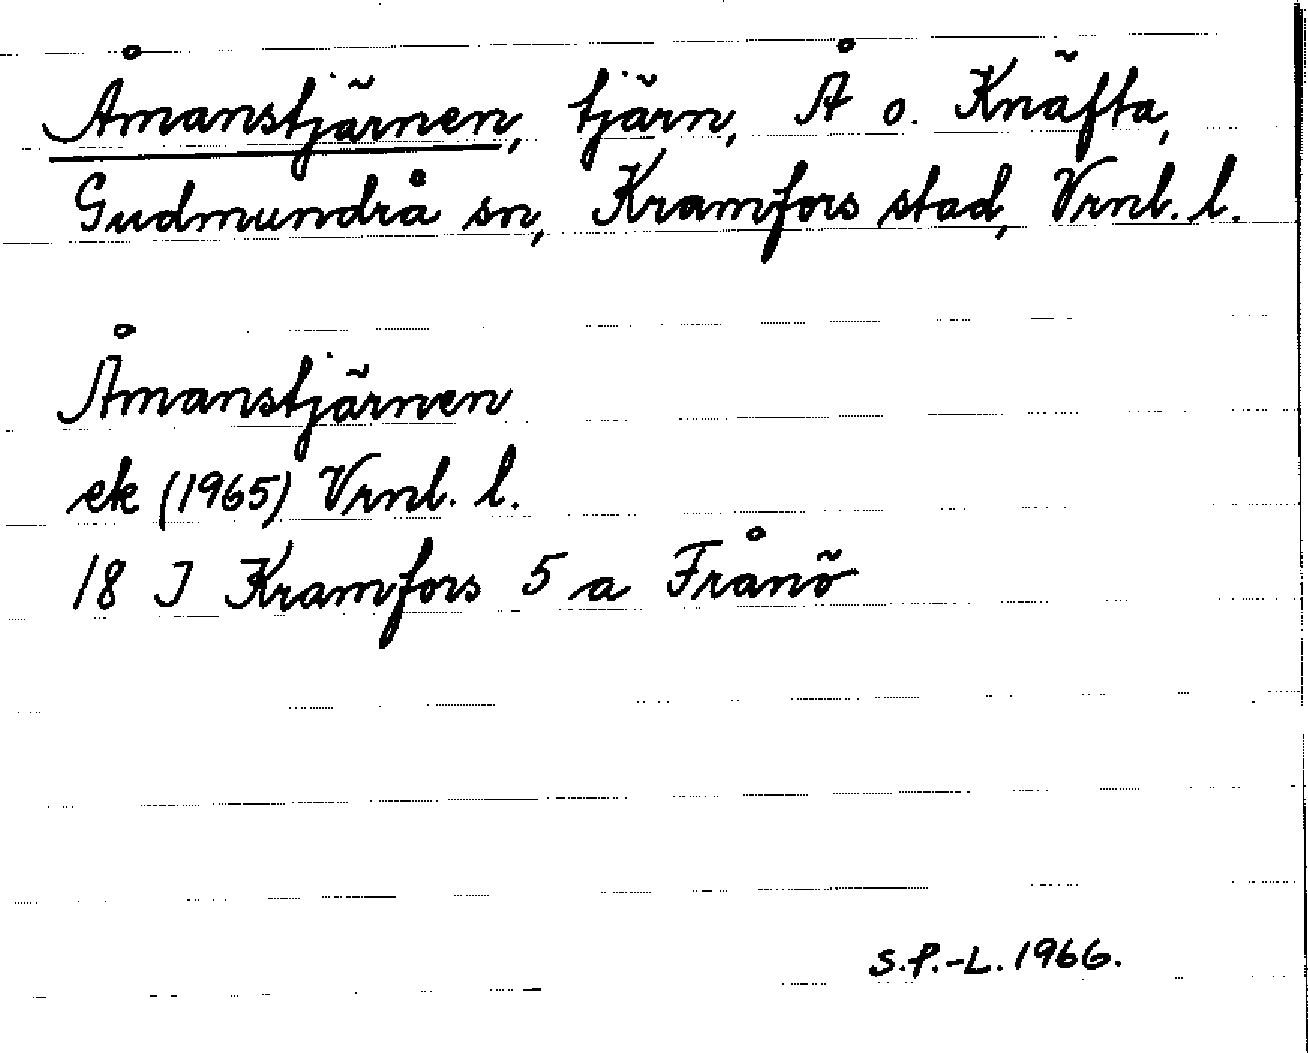 Åmanstjärnen, tjärn, Å o. Knäfta,
Gudmundrå sn, Kramfors stad, Vrnl. l.
Åmanstjärnen
ek (1965) Vrnl. l.
18 I Kramfors 5 a Frånö
S.P.-L. 1966.